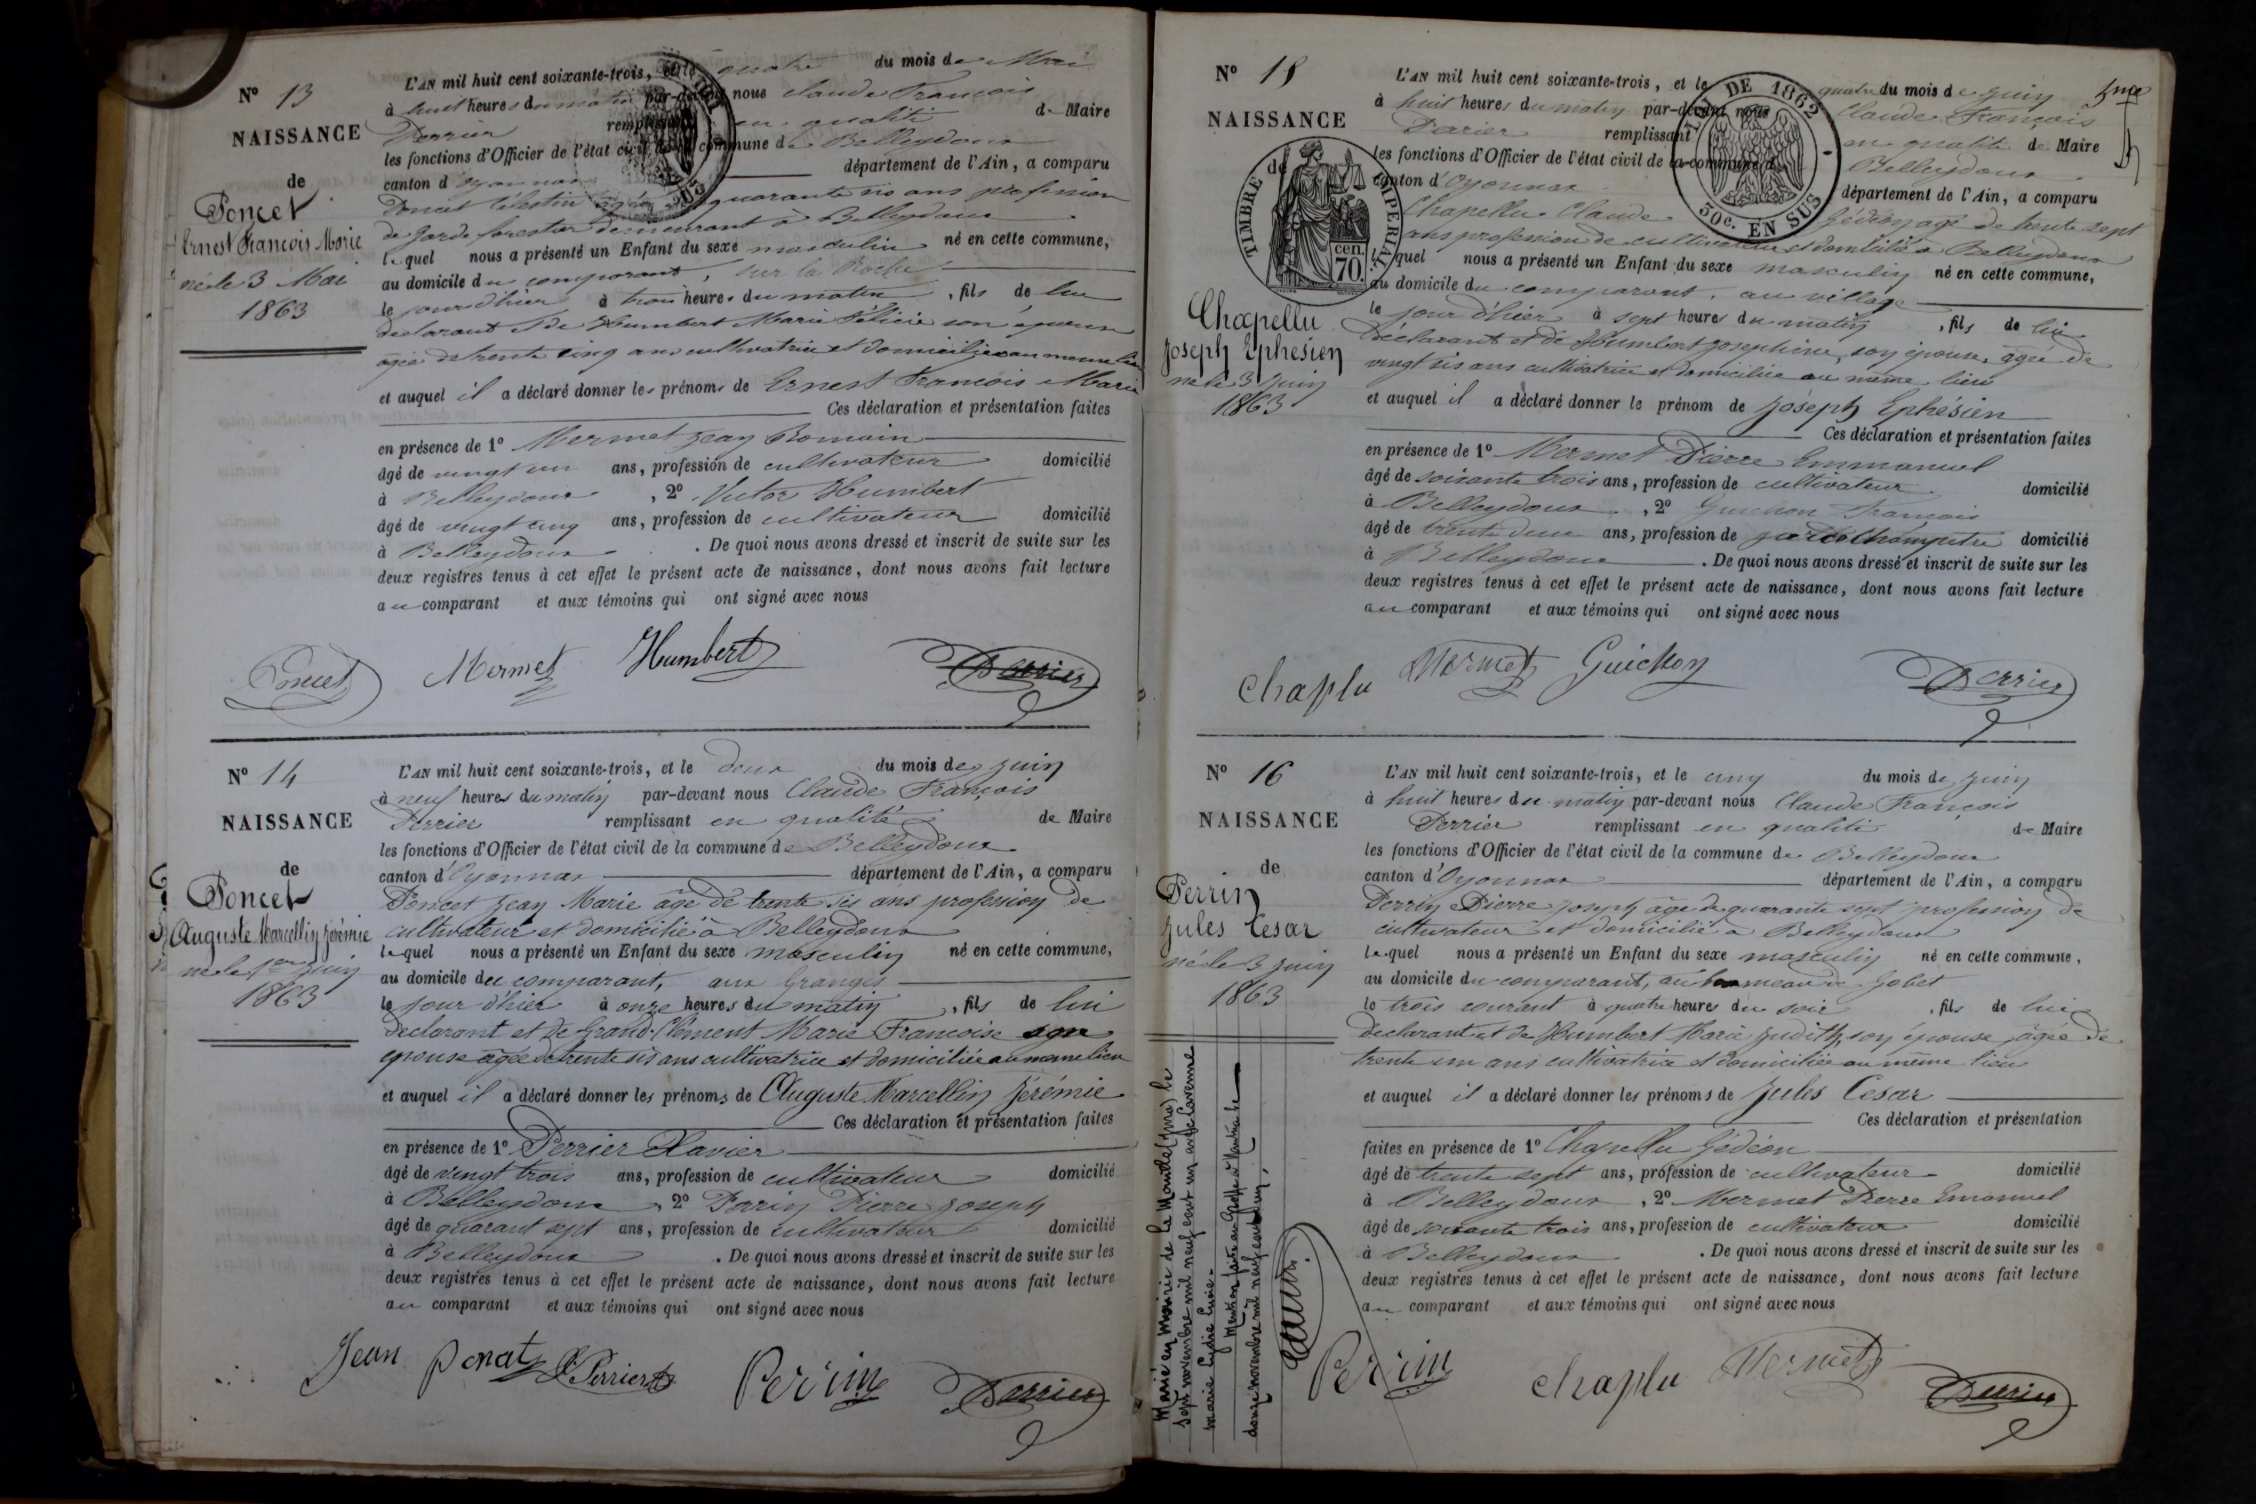 N° 13
NAISSANCE
de
Poncet
Ernest François Marie
né le 3 Mai
1863
L'AN mil huit cent soixante-trois, et le quatre du mois de Mai
à huit heures du matin par-devant nous Claude François
Perrier remplissant en qualité de Maire
les fonctions d'Officier de l'état civil de la commune de Belleydoux
canton d'Oyonnax département de l'Ain, a comparu
Poncet Célestin âgé de quarante six ans profession
de garde forestier demeurant à Belleydoux
lequel nous a présenté un Enfant du sexe masculin né en cette commune,
au domicile du comparant, sur la Roche
le jour d'hier à trois heures du matin, fils de lui
declarant et de Humbert Marie Félicie son épouse
agée de trente cinq ans cultivatrice et domiciliée au meme lieu
et auquel il a déclaré donner les prénoms de Ernest François Marie
Ces déclaration et présentation faites
en présence de 1° Mermet Jean Romain
âgé de vingt un ans, profession de cultivateur domicilié
à Belleydoux, 2° Victor Humbert
âgé de vingt cinq ans, profession de cultivateur domicilié
à Belleydoux. De quoi nous avons dressé et inscrit de suite sur les
deux registres tenus à cet effet le présent acte de naissance, dont nous avons fait lecture
au comparant et aux témoins qui ont signé avec nous
Poncet Mermet Humbert Perrier
N° 14
NAISSANCE
de
Poncet
Auguste Marcellin Jérémie
né le 1er Juin
1863
L'AN mil huit cent soixante-trois, et le deux du mois de Juin
à neuf heures du matin par-devant nous Claude François
Perrier remplissant en qualité de Maire
les fonctions d'Officier de l'état civil de la commune de Belleydoux
canton d'Oyonnax département de l'Ain, a comparu
Poncet Jean Marie âgé de trente six ans profession de
cultivateur et domicilié à Belleydoux
lequel nous a présenté un Enfant du sexe masculin né en cette commune,
au domicile du comparant, aux Granges
le jour d'hier à onze heures du matin, fils de lui
declarant et de Grand-Clément Marie Françoise son
epouse agée de trente six ans cultivatrice et domiciliée au meme lieu
et auquel il a déclaré donner les prénoms de Auguste Marcellin Jérémie
Ces déclaration et présentation faites
en présence de 1° Perrier Xavier
âgé de vingt trois ans, profession de cultivateur domicilié
à Belleydoux, 2° Parin Pierre Joseph
âgé de quarant sept ans, profession de cultivateur domicilié
à Belleydoux. De quoi nous avons dressé et inscrit de suite sur les
deux registres tenus à cet effet le présent acte de naissance, dont nous avons fait lecture
au comparant et aux témoins qui ont signé avec nous
Jean Ponat Perrier Perrin Perrier
N° 15
NAISSANCE
de
TIMBRE IMPERIAL
70 cen.
LOI DE 1862
30c. EN SUS
Chapellu
Joseph Ephésien
né le 3 Juin
1863
L'AN mil huit cent soixante-trois, et le quatre du mois de Juin
à huit heures du matin par-devant nous Claude François
Parier remplissant en qualité de Maire
les fonctions d'Officier de l'état civil de la commune de Belleydoux
canton d'Oyonnax département de l'Ain, a comparu
Chapellu Claude Gédéon agé de trente sept
ans profession de cultivateur et domicilié à Belleydoux
lequel nous a présenté un Enfant du sexe masculin né en cette commune,
au domicile du comparant, au village
le jour d'hier à sept heures du matin, fils de lui
déclarant et de Humbert Josephine, son épouse, âgée de
vingt six ans cultivatrice et domiciliée au même lieu
et auquel il a déclaré donner le prénom de Joseph Ephésien
Ces déclaration et présentation faites
en présence de 1° Mermet Pierre Emmanuel
âgé de soixante trois ans, profession de cultivateur domicilié
à Belleydoux, 2° Guichon François
âgé de trente deux ans, profession de garde champêtre domicilié
à Belleydoux. De quoi nous avons dressé et inscrit de suite sur les
deux registres tenus à cet effet le présent acte de naissance, dont nous avons fait lecture
au comparant et aux témoins qui ont signé avec nous
Chaplu Mermet Guichon Perrier
N° 16
NAISSANCE
de
Perrin
Jules Cesar
né le 3 Juin
1863
L'AN mil huit cent soixante-trois, et le cinq du mois de Juin
à huit heures du matin par-devant nous Claude François
Perrier remplissant en qualité de Maire
les fonctions d'Officier de l'état civil de la commune de Belleydoux
canton d'Oyonnax département de l'Ain, a comparu
Perrin Pierre Joseph âgé de quarante sept profession de
cultivateur et domicilié à Belleydoux
lequel nous a présenté un Enfant du sexe masculin né en cette commune,
au domicile du comparant, au hameau de Gobet
le trois courant à quatre heures du soir, fils de lui
declarant et de Humbert Marie Judith, son épouse, âgée de
trente un ans cultivatrice et domiciliée au même lieu
et auquel il a déclaré donner les prénoms de Jules Cesar
Ces déclaration et présentation
faites en présence de 1° Chapellu Gédéon
âgé de trente sept ans, profession de cultivateur domicilié
à Belleydoux, 2° Mermet Pierre Emanuel
âgé de soixante trois ans, profession de cultivateur domicilié
à Belleydoux. De quoi nous avons dressé et inscrit de suite sur les
deux registres tenus à cet effet le présent acte de naissance, dont nous avons fait lecture
au comparant et aux témoins qui ont signé avec nous
Perrin Chaplu Mermet Perrier
Marié en Mairie de La Mande (Jura) le
sept novembre mil neuf cent un avec
Marie Lydie Lucie.
Mention faite au Greffe à Nantua le
douze novembre mil neuf cent un.